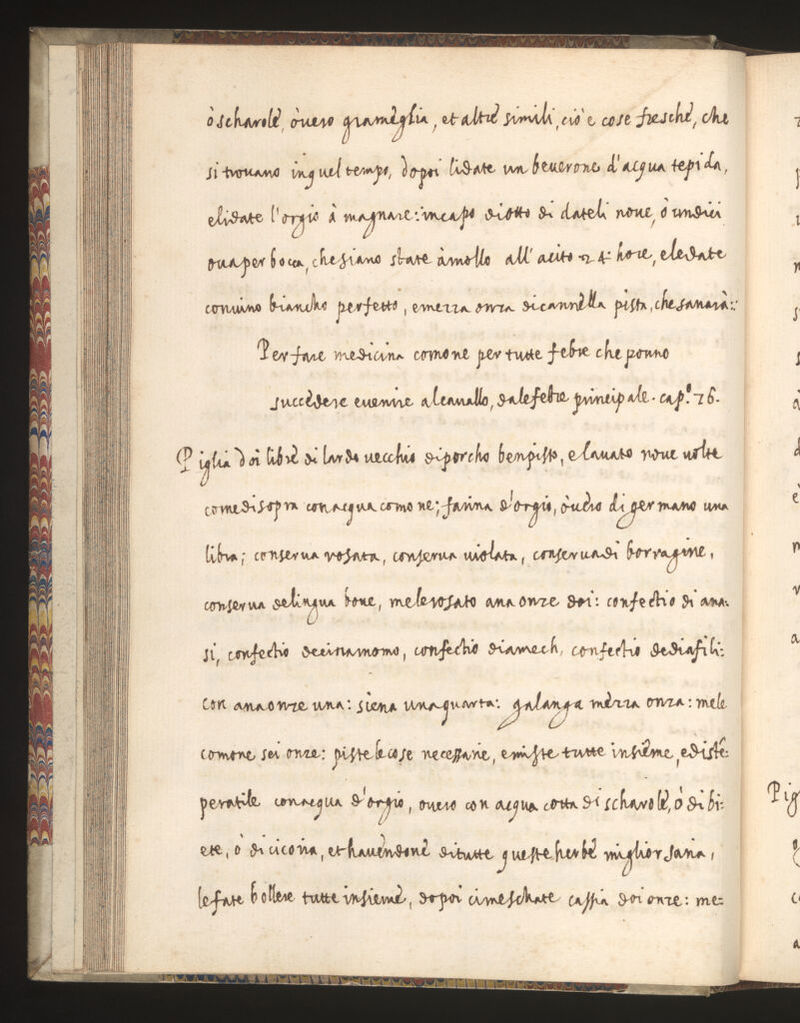 ò scharole, òuero grameglia, et altre simili, ciò è cose fresche, che
si trouano in quel tempo, dopoi lidate un beuerone d'acqua tepida,
e lidate l'orgio à magnare: in capo diotto di dateli noue, ò undici
oua per bocca, che siano state à mollo all' acito 24: hore, e ledate
con uino biancho perfetto, e mezza onza di cannella pista, che sanarà:
Per fare medicina comone per tutte febre che ponno
succedere e uenire al cauallo, dale febre principale. cap.º 76.
Piglia doi libre di lardo uecchio di porcho ben pisto, e lauato noue uolte
come disopra con acqua comone; farina d'orgio, òuero di germano una
libra; conserua rosata, conserua uiolata, conserua di borragine,
conserua de lingua boue, mele rosato ana onze doi: confectio di ana:
si, confectio de cinamomo, confectio diamech, confectio de diafili:
con ana onze una: siena una quarta: galanga mezza onza: mele
comone sei onze: piste le cose necessarie, e miste tutte insieme, e distê:
peratile con acqua d'orgio, ouero con acqua cotta di scharole, ò di bi:
ete, ò di cicoria, et hauendone di tutte queste herbe miglior saria,
le fate bollere tutte insieme, dopoi ci meschate cassia doi onze: me:
Pig